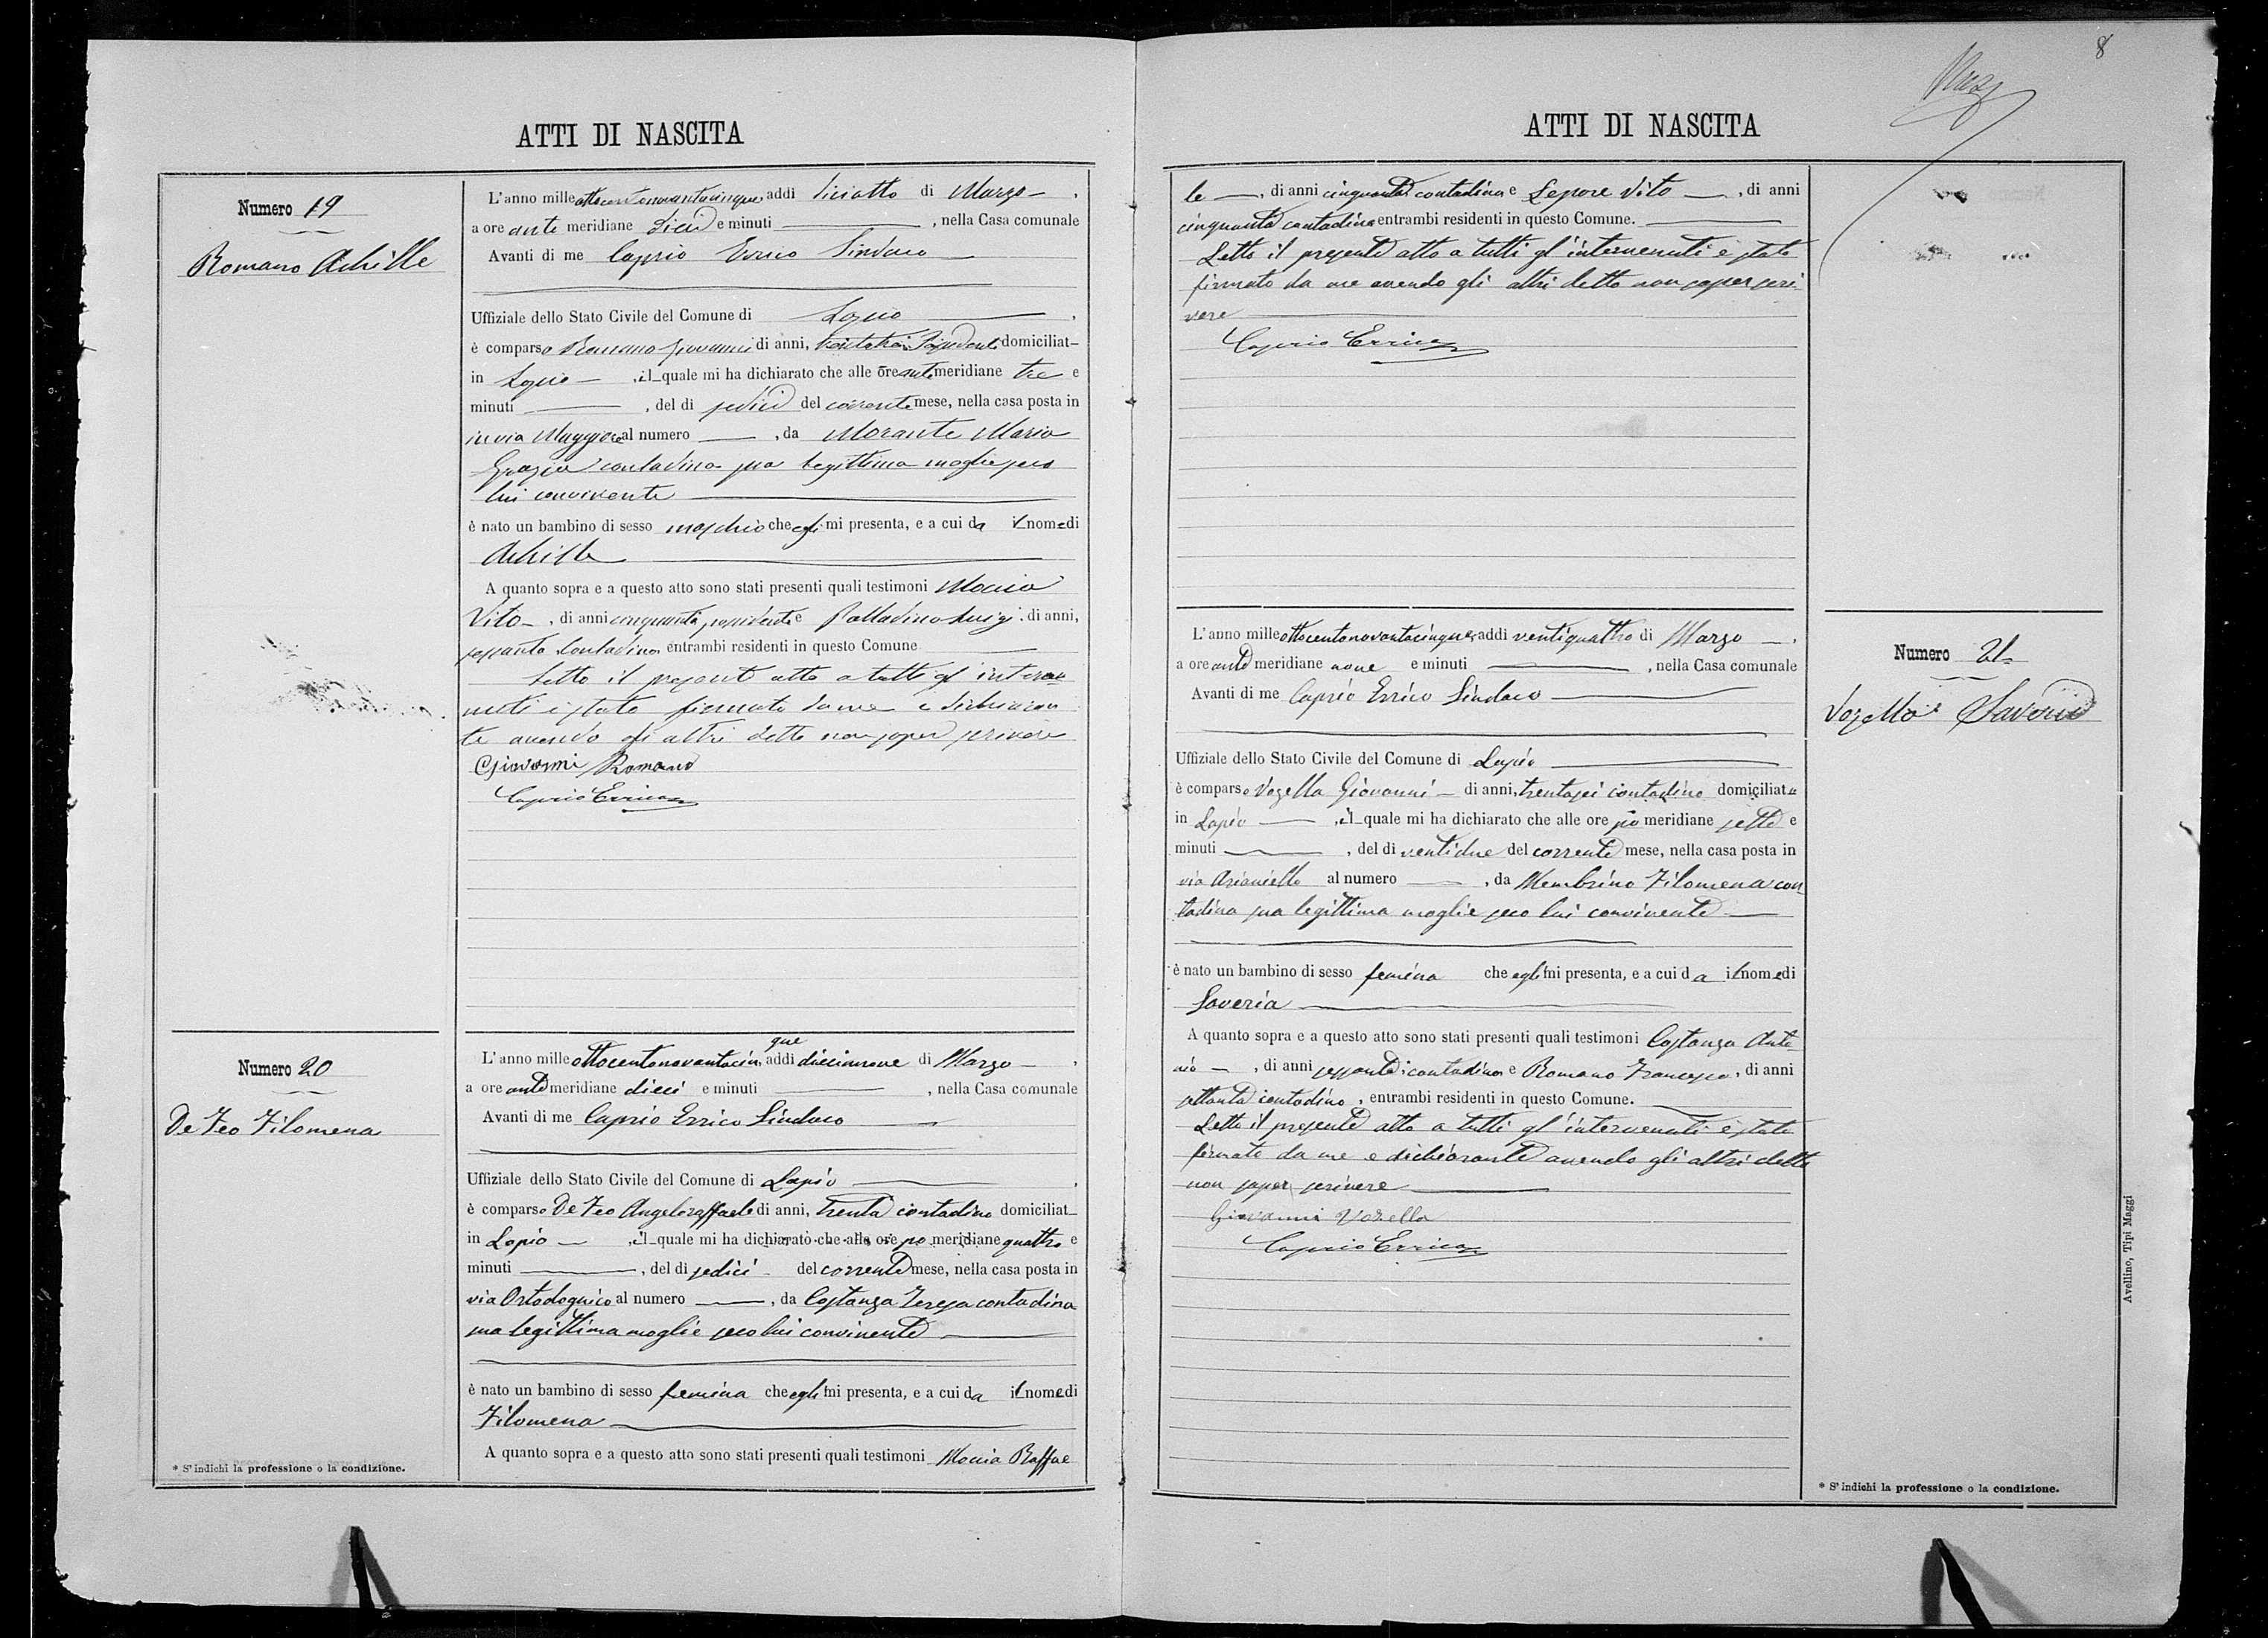 8
ATTI DI NASCITA
Numero 19
Romano Achille
L'anno mille ottocentonovantacinque addì diciotto di Marzo
a ore ante meridiane dieci e minuti, nella Casa comunale
Avanti di me Caprio Errico Sindaco
Uffiziale dello Stato Civile del Comune di Lapio
è comparso Romano Giovanni di anni, trentatre Possidente domiciliat
in Lapio, il quale mi ha dichiarato che alle ore ante meridiane tre e
minuti, del di sedici del corrente mese, nella casa posta in
in via Maggiore al numero, da Morante Maria
Grazia contadina sua legittima moglie seco
lui convivente
è nato un bambino di sesso maschio che egli mi presenta, e a cui da il nome di
Achille
A quanto sopra e a questo atto sono stati presenti quali testimoni Moccia
Vito, di anni cinquanta possidente e Palladino Luigi, di anni,
sessanta contadino, entrambi residenti in questo Comune
Letto il presente atto a tutti gl'interve
nuti è stato firmato da me e dichiaran
te avendo gli altri detto non saper scrivere
Giovanni Romano
Caprio Errico
Numero 20
De Feo Filomena
L'anno mille ottocentonovantacinque addì diecinnove di Marzo
a ore ante meridiane dieci e minuti, nella Casa comunale
Avanti di me Caprio Errico Sindaco
Uffiziale dello Stato Civile del Comune di Lapio
è comparso De Feo Angeloraffaele di anni, trenta contadino domiciliat
in Lapio, il quale mi ha dichiarato che alle ore po meridiane quattro e
minuti, del di sedici del corrente mese, nella casa posta in
via Ortodognico al numero, da Costanza Teresa contadina
sua legittima moglie seco lui convivente
è nato un bambino di sesso femina che egli mi presenta, e a cui da il nome di
Filomena
A quanto sopra e a questo atto sono stati presenti quali testimoni Moccia Raffae
* S'indichi la professione o la condizione.
ATTI DI NASCITA
le, di anni cinquanta contadino e Lepore Vito, di anni
cinquanta contadino entrambi residenti in questo Comune.
Letto il presente atto a tutti gl'intervenuti è stato
firmato da me avendo gli altri detto non saper scri
vere
Caprio Errico
Numero 21
Vozella Saveria
L'anno mille ottocentonovantacinque, addì ventiquattro di Marzo
a ore ante meridiane nove e minuti, nella Casa comunale
Avanti di me Caprio Errico Sindaco
Uffiziale dello Stato Civile del Comune di Lapio
è comparso Vozella Giovanni di anni, trentasei contadino domiciliato
in Lapio, il quale mi ha dichiarato che alle ore po meridiane sette e
minuti, del di ventidue del corrente mese, nella casa posta in
via Arianiello al numero, da Membrino Filomena con
tadina sua legittima moglie seco lui convivente
è nato un bambino di sesso femina che egli mi presenta, e a cui da il nome di
Saveria
A quanto sopra e a questo atto sono stati presenti quali testimoni Costanza Anto
nio, di anni sessanta contadino e Romano Francesco, di anni
settanta contadino, entrambi residenti in questo Comune.
Letto il presente atto a tutti gl'intervenuti è stato
firmato da me e dichiarante avendo gli altri detto
non saper scrivere
Giovanni Vozella
Caprio Errico
* S'indichi la professione o la condizione.
Avellino, Tipi Maggi